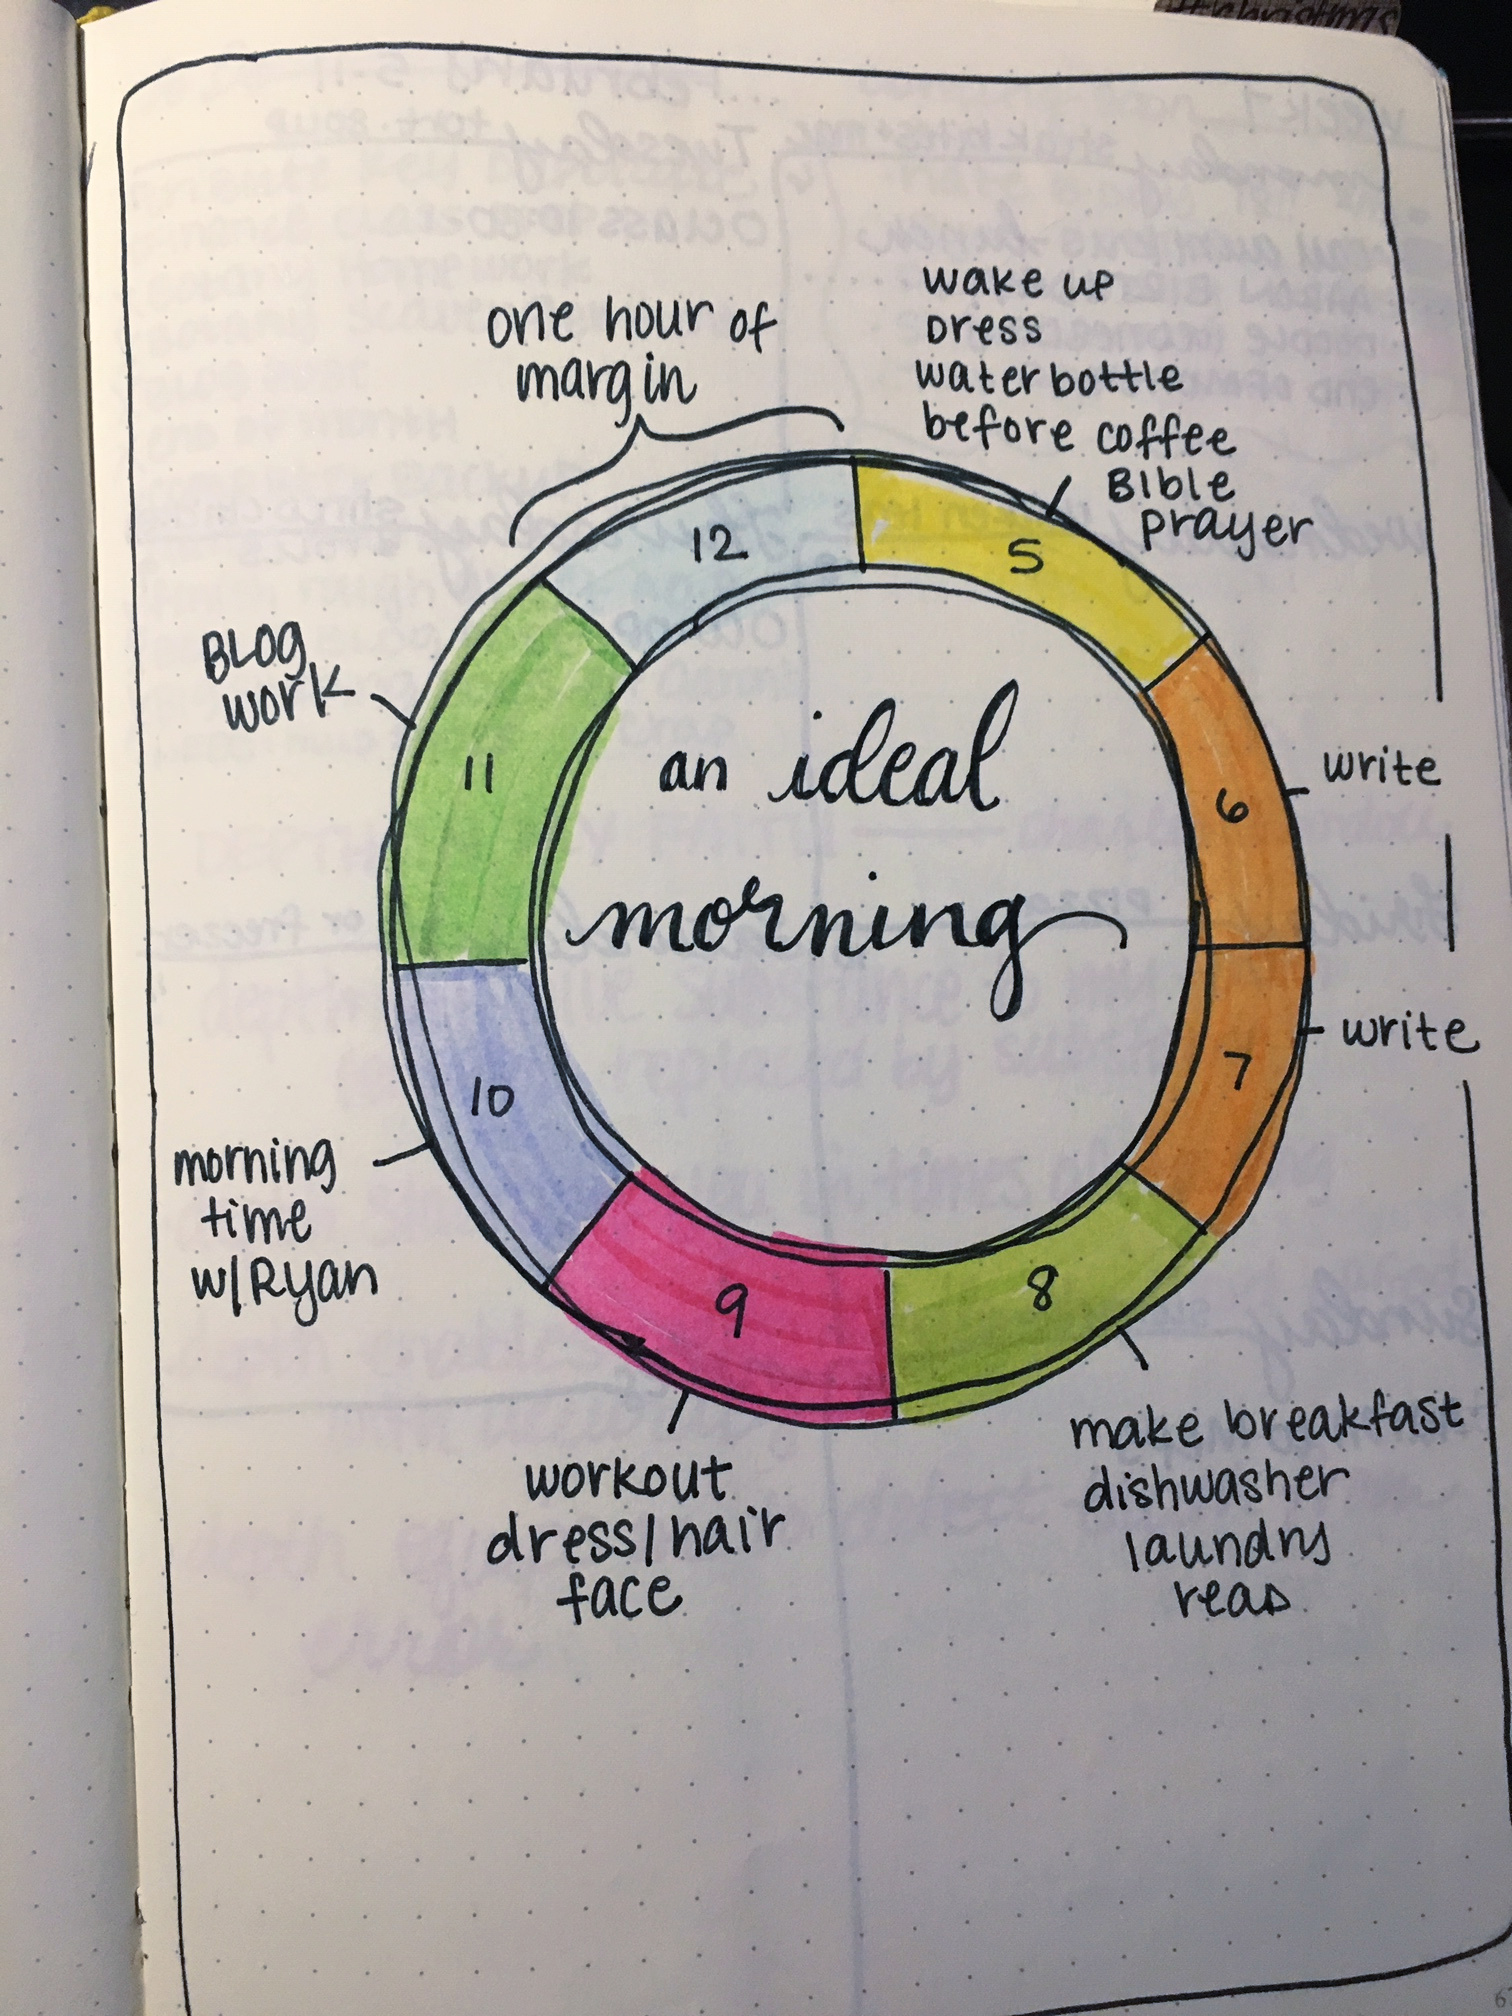 one hour of
margin
wake up
Dress
water bottle
before coffee
Bible
prayer
12
5
Blog
work
11
an ideal
morning
6
write
7
write
10
morning
time
w/Ryan
9
8
workout
dress/hair
face
make breakfast
dishwasher
laundry
read